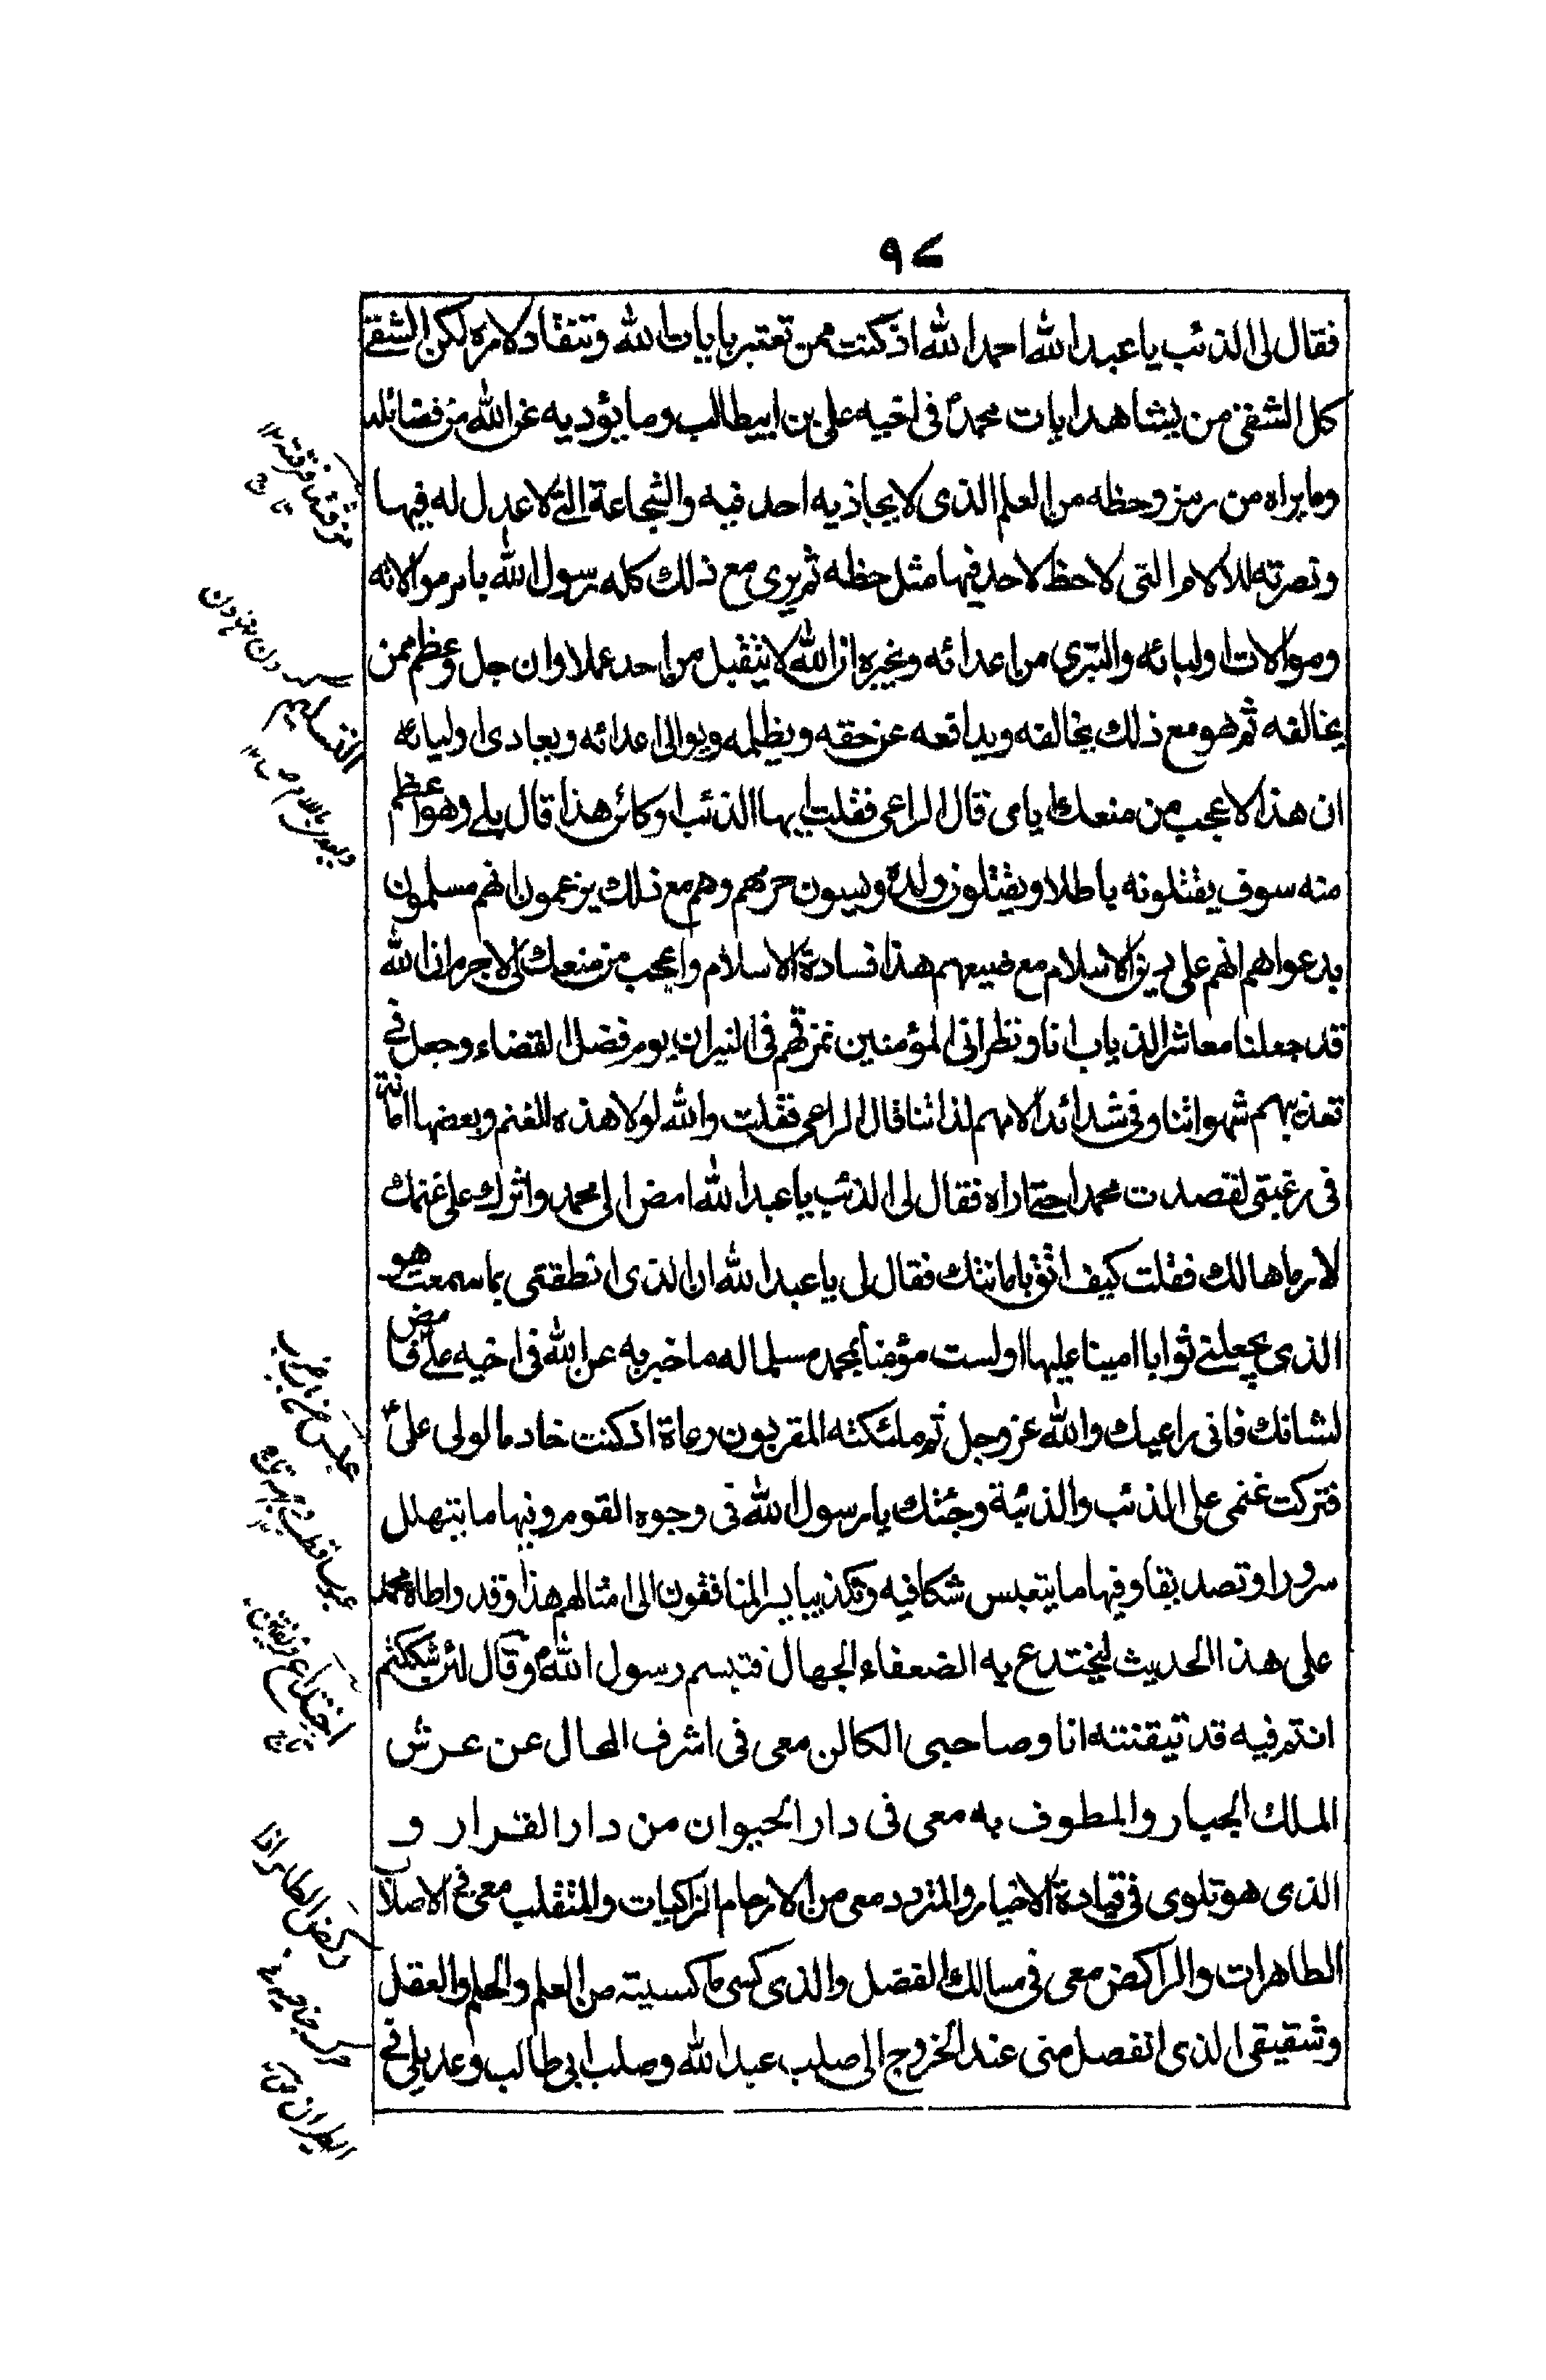 ٩٧
فقال لى الذئب يا عبد الله احمد الله اذ كنت ممن تعتبر بايات الله وتنقاد لامره لكن الشقى
كل الشقى من يشاهد ايات محمدؐ فى اخيه على بن ابيطالب وما يؤديه عن الله من فضائله
وما يراه من وحظه من العلم الذى لا يحاذيه احد فيه والشجاعة التى لا عدل له فيها
ونصرته للاسلام التى لا حظ لاحد فيها مثل حظه ثم يرى مع ذلك كله رسول الله يامر موالاته
وموالات اوليائه والتبرى من اعدائه ويخبره ان الله لا يتقبل من احد عملا وان جل وعظم ممن
يخالفه ثم هو مع ذلك يخالفه ويدافعه عن حقه ويظلمه ويوالى اعدائه ويعادى اوليائه
ان هذا لاعجب من منعك ايامى قال الراعى فقلت ايها الذئب او كائن هذا قال بلى وهو اعظم
منه سوف يقتلونه باطلا ويقتلون ولده ويسبون حرمهم وهم مع ذلك يزعمون انهم مسلمون
بدعواهم انهم على دين الاسلام مع صنيعهم هذا فسادة الاسلام واعجب من منعك لى لا جرم ان الله
قد جعلنا معاشر الذياب انا ونظرائى المؤمنين نمزقهم فى النيران يوم فصل القضاء وجعل فى
تعذيبهم شهواتنا وفى شدائد الامهم لذاتنا قال الراعى فقلت والله لولا هذه الغنم وبعضها امانة
فى رغبتى لقصدت محمدا حتى اراه فقال لى الذئب يا عبد الله امض الى محمد واترك على غنمك
لارعاها لك فقلت كيف اثق بامانتك فقال لى يا عبد الله ان الذى انطقتى بما سمعت هو
الذى يجعلنى ثوابا امينا عليها اولست مؤمنا بمحمد مسلما له ما اخبر به عن الله فى اخيه على فامض
لشانك فانى راعيك والله عز وجل ثم ملئكته المقربون رعاة اذ كنت خادما لولى علىؑ
فتركت غنمى على الذئب والذئبة وجئتك يا رسول الله فى وجوه القوم وفيها ما يتهلل
سرورا وتصديقا وفيها ما يتعبس شكا فيه وتكذيبا يسر المنافقون الى امثالهم هذا وقد واطاه محمد
على هذا الحديث ليختدع به الضعفاء الجهال فتبسم رسول اللهؐ وقال لئن شككتم
انتم فيه قد تيقنته انا وصاحبى الكائن معى فى اشرف المحال عن عرش
الملك الجبار والمطوف به معى فى دار الحيوان من دار القرار و
الذى هو تلوى فى قيادة الاخيار والمتردد معى من الارحام الزاكيات والمتقلب معى فى الاصلاب
الطاهرات والراكض معى فى مسالك الفضل والذى كسى ما كسيته من العلم والحلم والعقل
وشقيقى الذى انفصل منى عند الخروج الى صلب عبد الله وصلب ابى طالب وعديلى فى